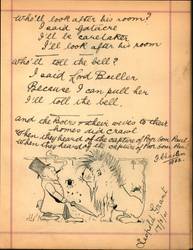 Who'll look after his room?
I said Gatacre
I'll be caretaker
I'll look after his room
Who'll toll the bell?
I said Lord Buller
Because I can pull her
I'll toll the bell.
And the Boers & their wives to their
homes did crawl
When they heard of the capture of Poor Oom Paul
When they heard of the capture of Poor Oom Paul